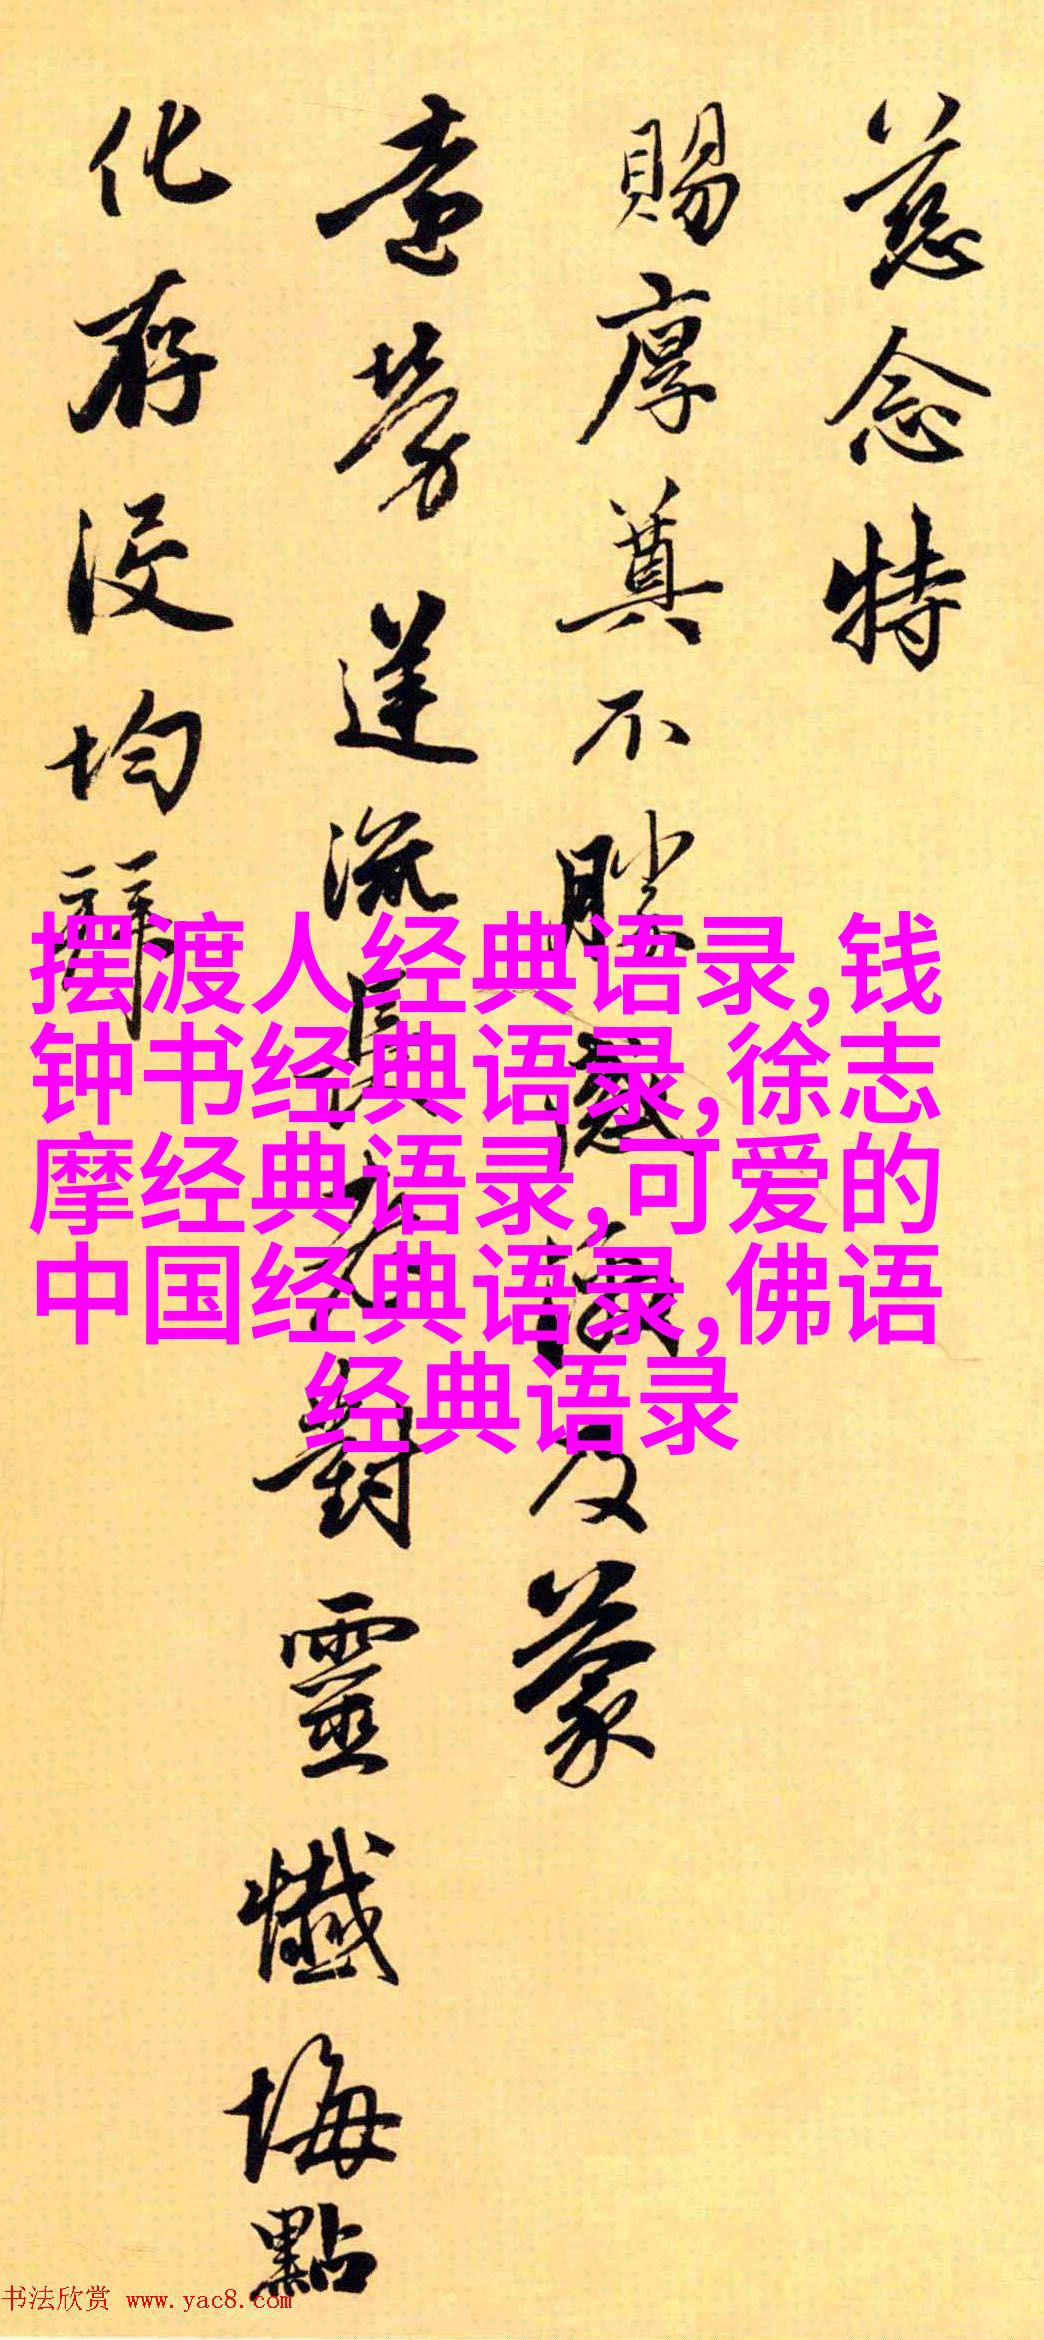 慈念特
賜厚奠不勝感激及蒙
遠勞蓮流長者對靈懺悔點
化存没均
摆渡人经典语录,钱
钟书经典语录,徐志
摩经典语录,可爱的
中国经典语录,佛语
经典语录
书法欣赏 www.yac8.com